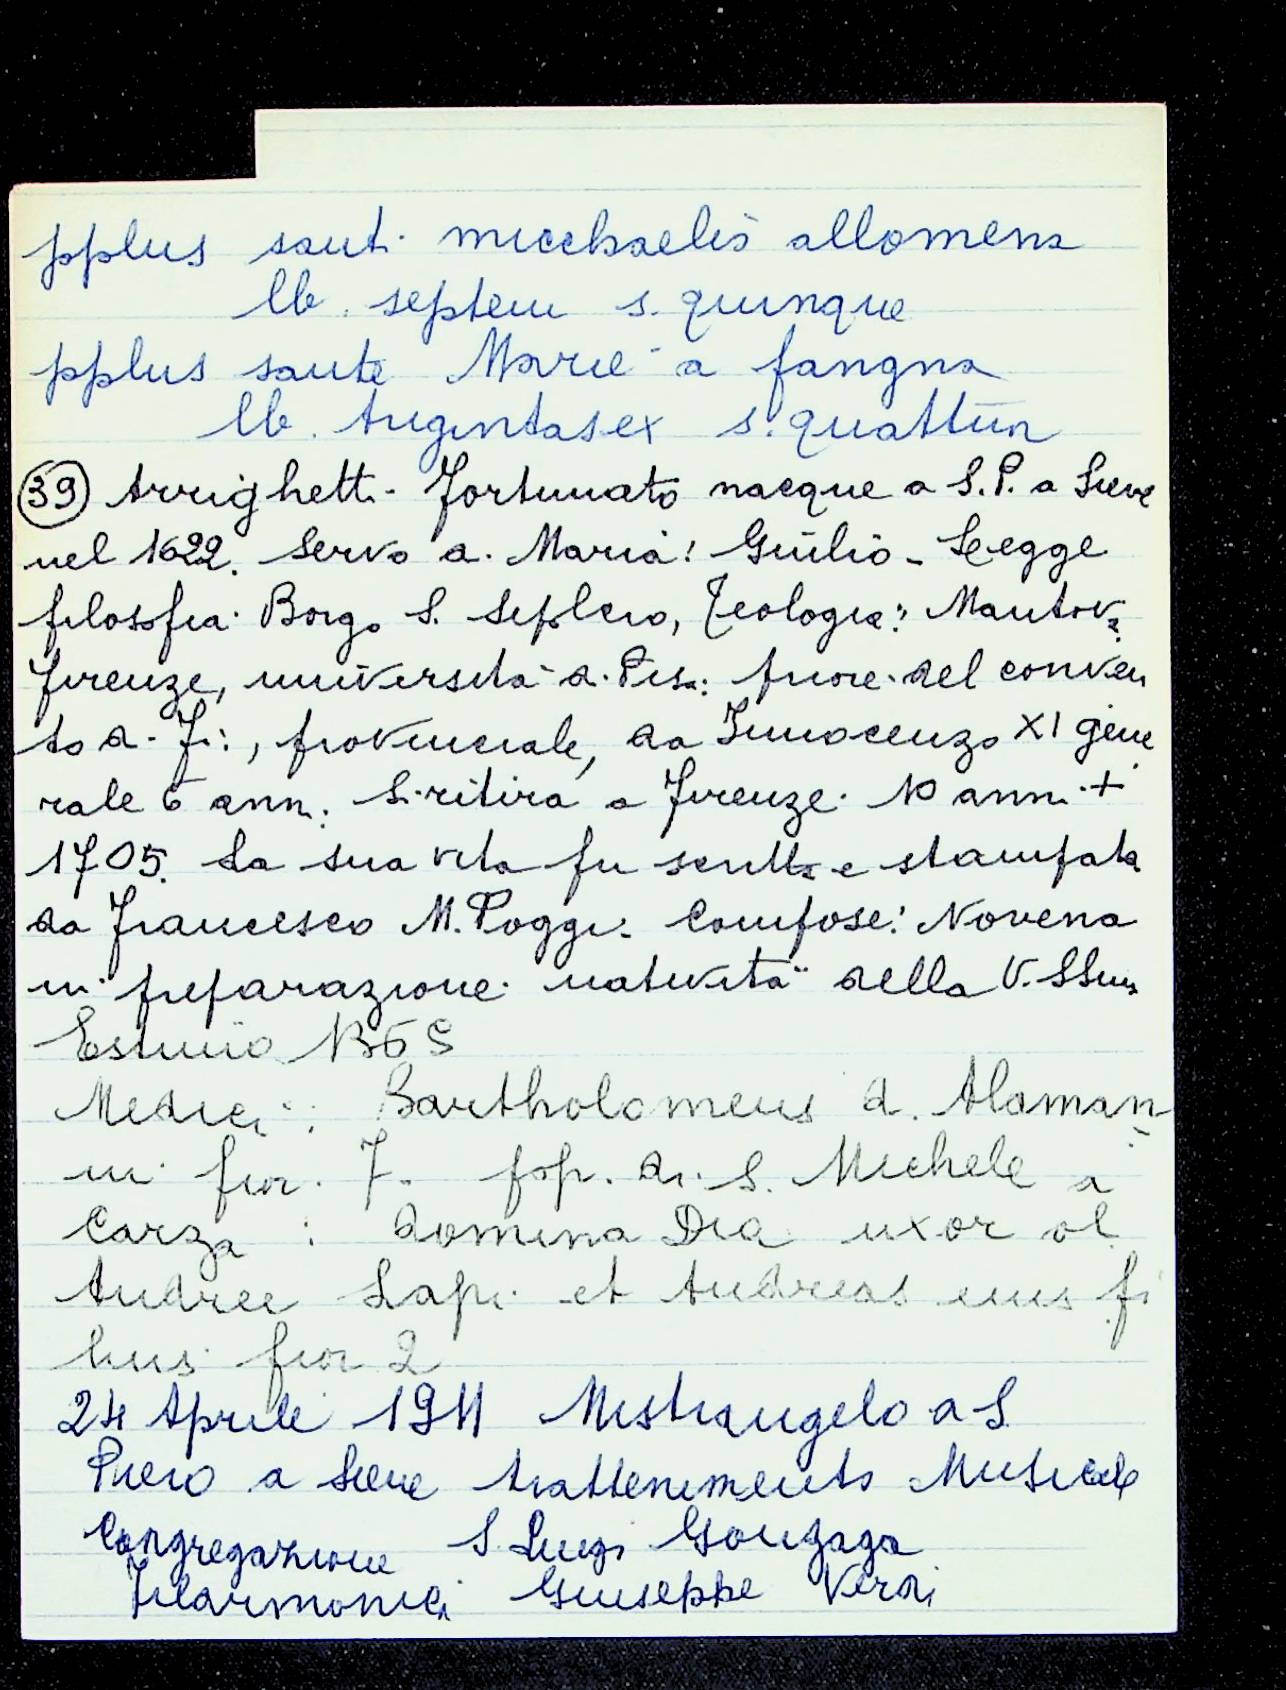 pplus sant. micchaelis allomena
lb. septem s. quinque
pplus sante Marie a fangna
lb. trigintasex s. quattuor
39 Arrighetti Fortunato nacque a S.P. a Sieve
nel 1622. Servo di Maria: Giulio - Legge
filosofia: Borgo S. Sepolcro, Teologia: Mantova,
Firenze, università di Pisa: priore del conven
to di Fi:, provinciale, da Innocenzo XI gene
rale 6 anni. Si ritira a Firenze. 10 anni +
1705. La sua vita fu scritta e stampata
da Francesco M. Poggi: Compose: Novena
in preparazione natività della V. SSma
Estimo 1365
Medici: Bartholomeus d. Alaman
ni fior. 7. pop. di S. Michele a
Carza: domina Dia uxor ol.
Andree Lapi et Andreas eius fi
lius fior 2
24 Aprile 1911 Mistrangelo a S.
Piero a Sieve trattenimento Musicale
Congregazione S. Luigi Gonzaga
Filarmonici Giuseppe Verdi